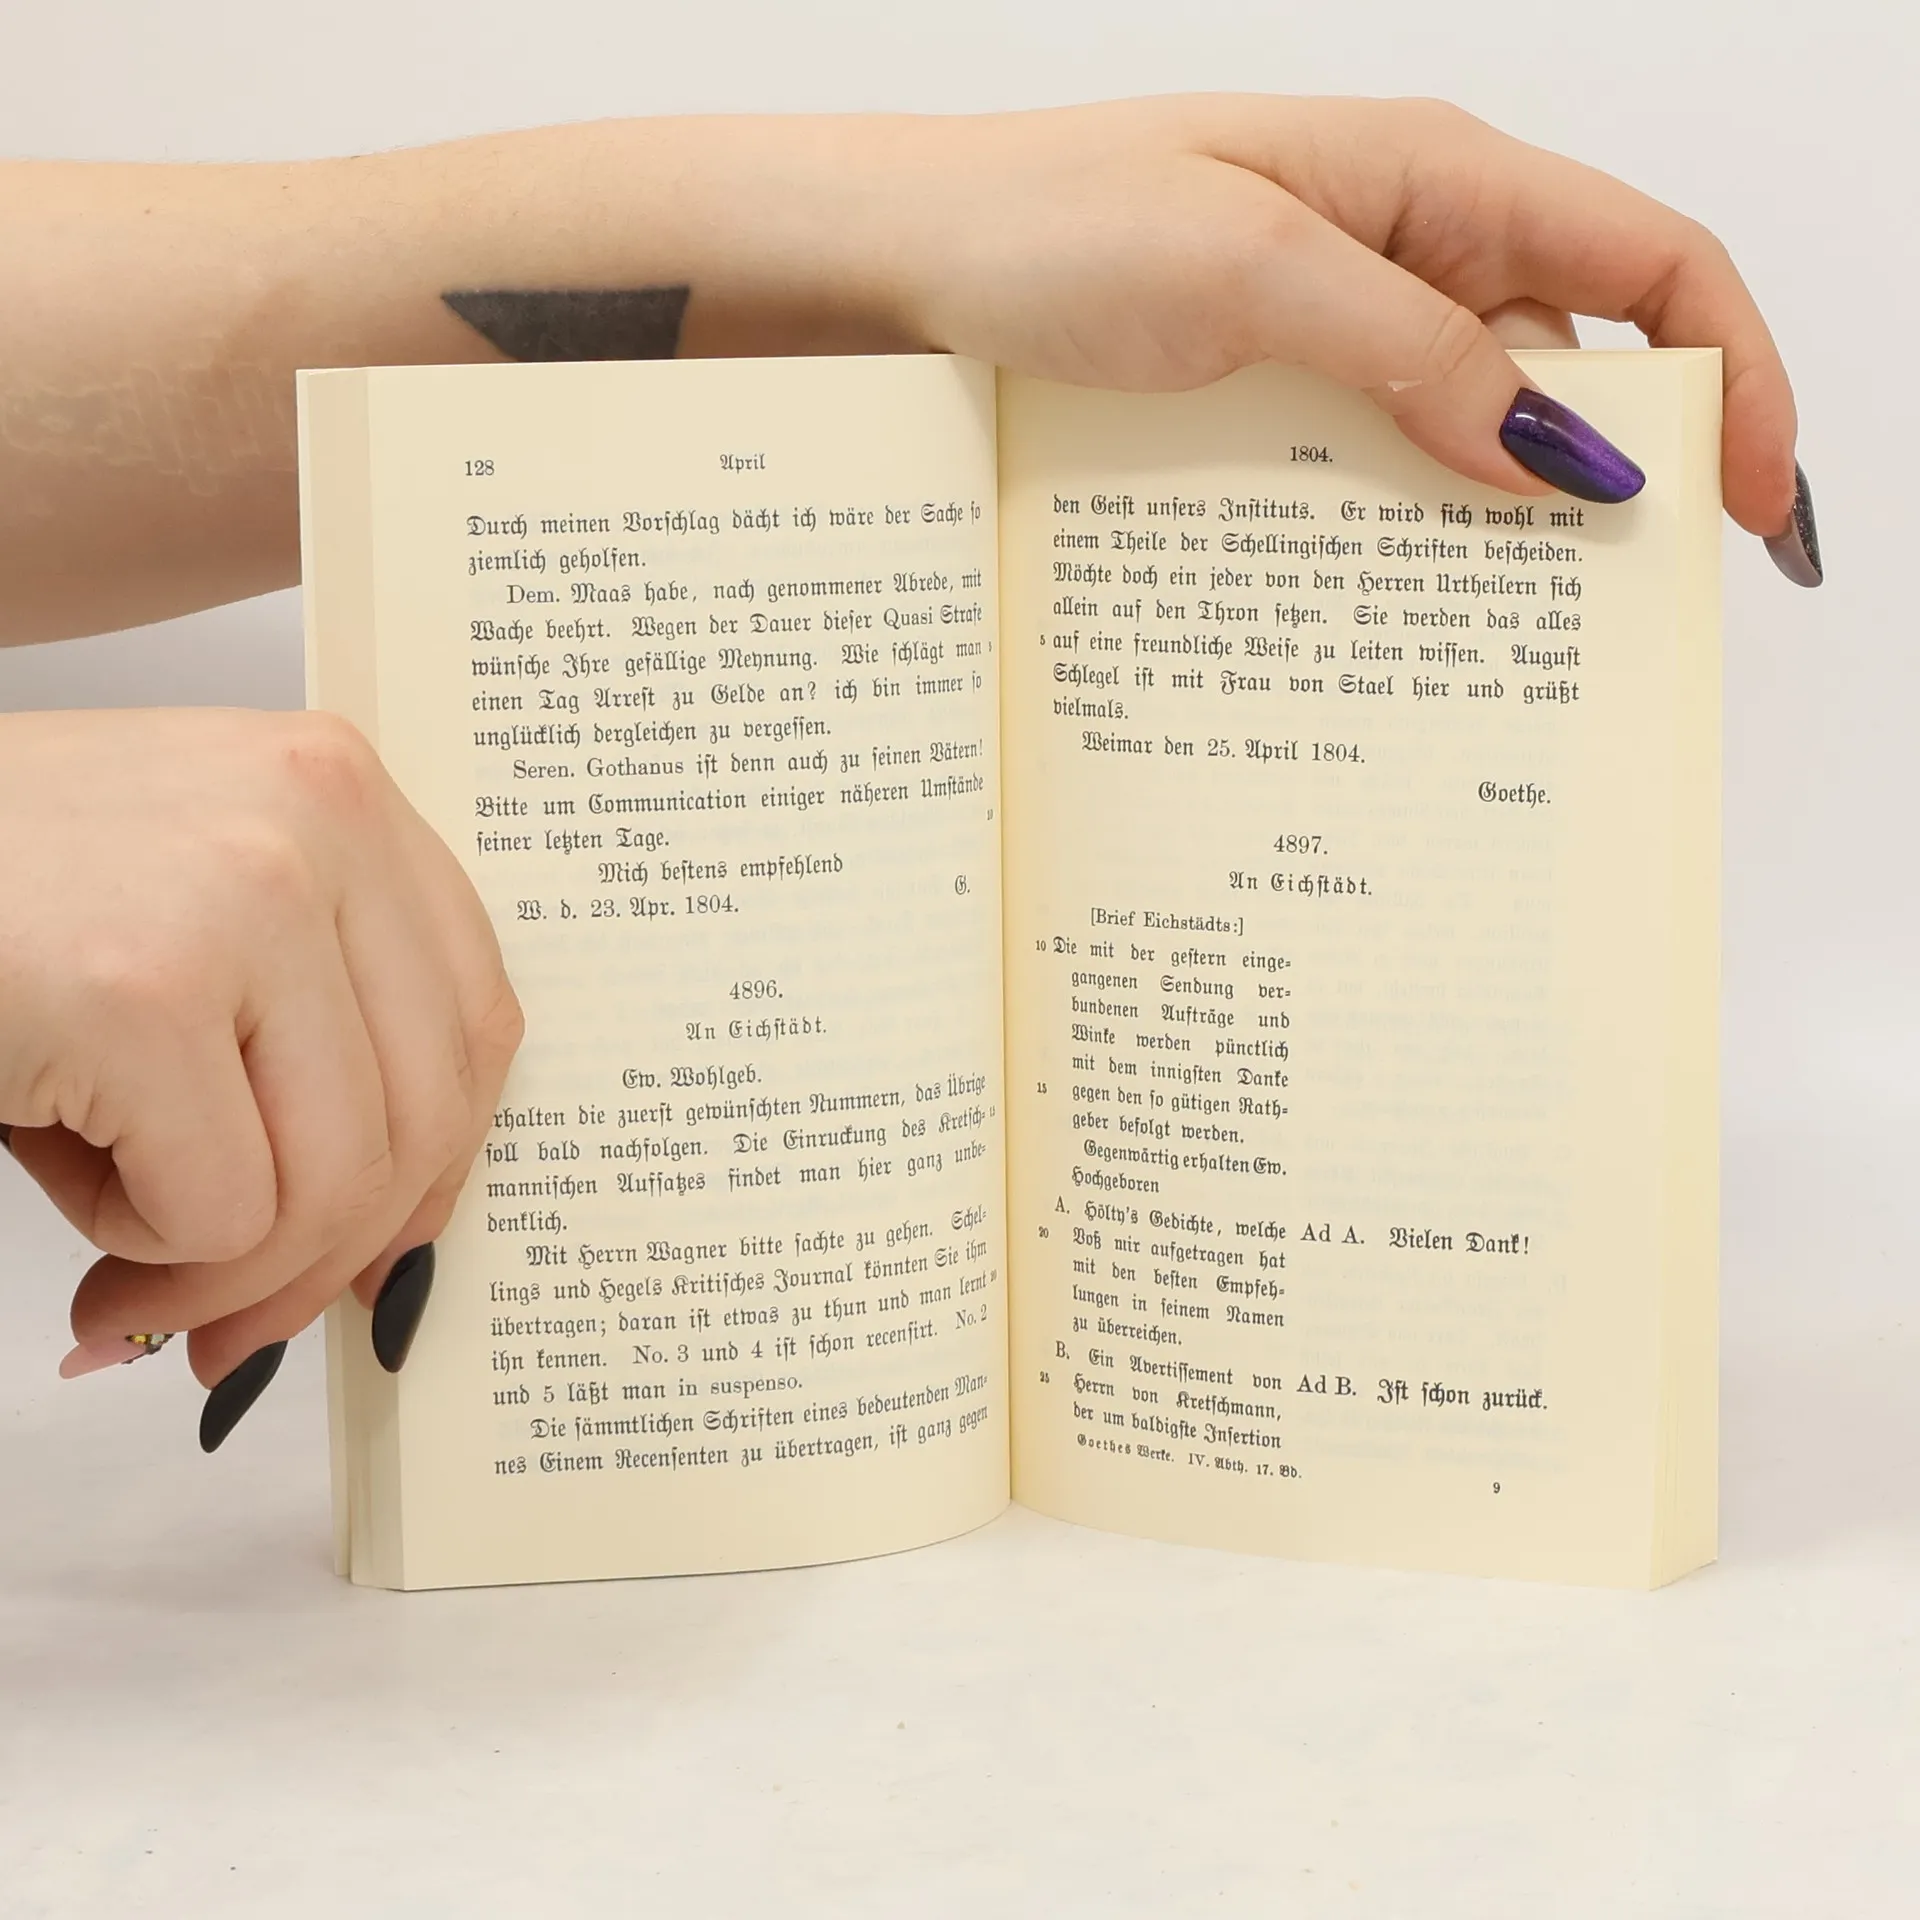 128
April
Durch meinen Vorschlag dächt ich wäre der Sache so
ziemlich geholfen.
Dem. Maas habe, nach genommener Abrede, mit
Wache beehrt. Wegen der Dauer dieser Quasi Strafe
wünsche Ihre gefällige Meynung. Wie schlägt man 5
einen Tag Arrest zu Gelde an? ich bin immer so
unglücklich dergleichen zu vergessen.
Seren. Gothanus ist denn auch zu seinen Vätern!
Bitte um Communication einiger näheren Umstände
seiner letzten Tage. 10
Mich bestens empfehlend
W. d. 23. Apr. 1804. G.
4896.
An Eichstädt.
Ew. Wohlgeb.
rhalten die zuerst gewünschten Nummern, das Übrige
soll bald nachfolgen. Die Einruckung des Kretsch- 15
mannischen Aufsatzes findet man hier ganz unbe-
denklich.
Mit Herrn Wagner bitte sachte zu gehen. Schel-
lings und Hegels Kritisches Journal könnten Sie ihm
übertragen; daran ist etwas zu thun und man lernt 20
ihn kennen. No. 3 und 4 ist schon recensirt. No. 2
und 5 läßt man in suspenso.
Die sämmtlichen Schriften eines bedeutenden Man-
nes Einem Recensenten zu übertragen, ist ganz gegen
1804.
den Geist unsers Instituts. Er wird sich wohl mit
einem Theile der Schellingischen Schriften bescheiden.
Möchte doch ein jeder von den Herren Urtheilern sich
allein auf den Thron setzen. Sie werden das alles
5 auf eine freundliche Weise zu leiten wissen. August
Schlegel ist mit Frau von Stael hier und grüßt
vielmals.
Weimar den 25. April 1804.
Goethe.
4897.
An Eichstädt.
[Brief Eichstädts:]
10 Die mit der gestern einge-
gangenen Sendung ver-
bundenen Aufträge und
Winke werden pünctlich
mit dem innigsten Danke
15 gegen den so gütigen Rath-
geber befolgt werden.
Gegenwärtig erhalten Ew.
Hochgeboren
A. Hölty's Gedichte, welche Ad A. Vielen Dank!
20 Voß mir aufgetragen hat
mit den besten Empfeh-
lungen in seinem Namen
zu überreichen.
B. Ein Avertissement von Ad B. Ist schon zurück.
25 Herrn von Kretschmann,
der um baldigste Insertion
Goethes Werke. IV. Abth. 17. Bd.
9